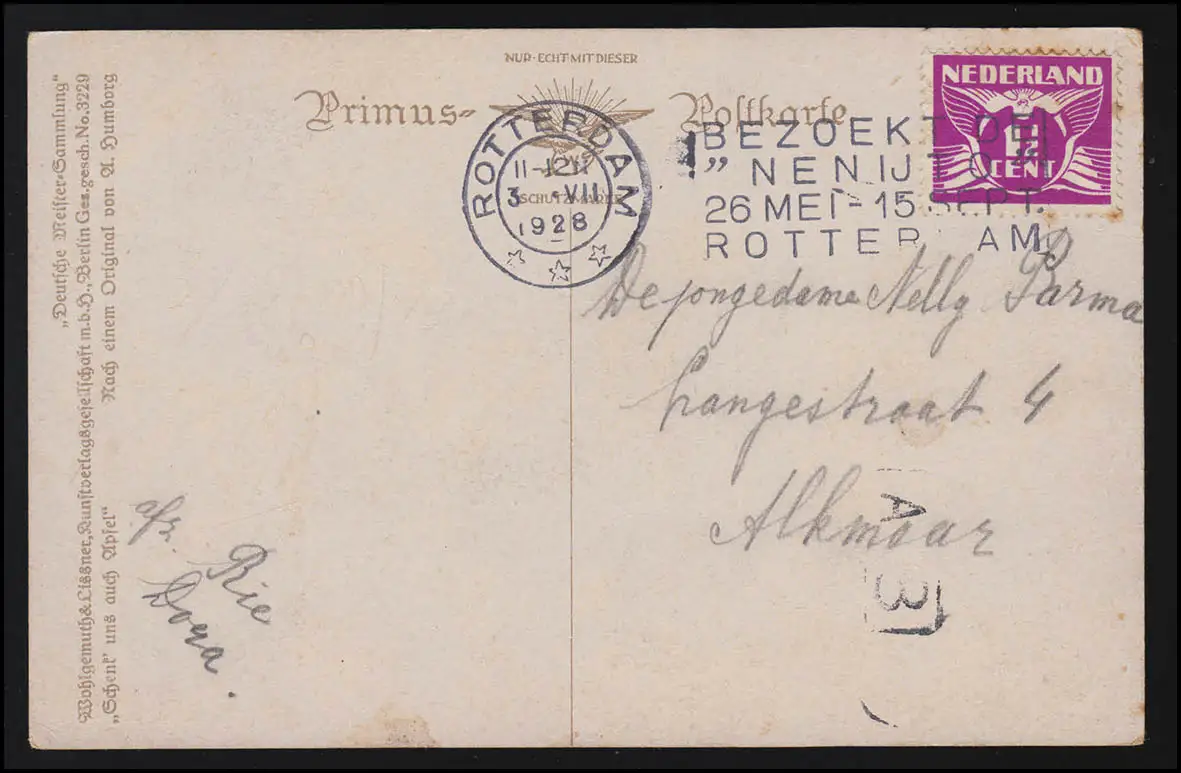 NUR·ECHT MIT DIESER
Primus-Postkarte
SCHUTZMARKE
NEDERLAND
1½
CENT
ROTTERDAM
11-12V
3 VII
1928
BEZOEKT DE
"NENIJTO"
26 MEI-15 SEPT.
ROTTERDAM
De jongedame Nelly Parma
Langestraat 4
Alkmaar
A
3
afz.
Rie
„Deutsche Meister-Sammlung“
Wohlgemuth & Lissner, Kunstverlagsgesellschaft m.b.H., Berlin Ges.gesch.No.3229
„Schenk' uns auch Apfel“ Nach einem Original von A. Humborg